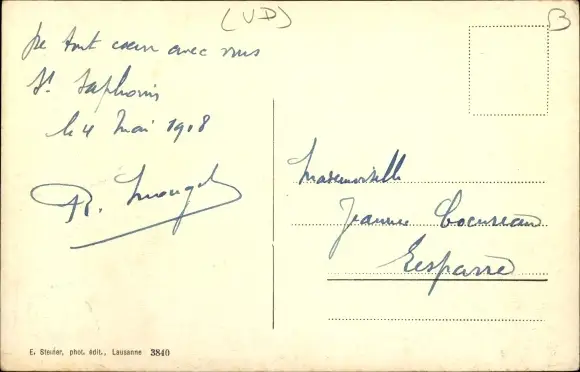 (VD)
B
De tout cœur avec vous
St Saphorin
le 4 Mai 1918
R. Mougel
Mademoiselle
Jeanne Cocureau
Lesparre
E. Steuler, phot. édit., Lausanne 3840